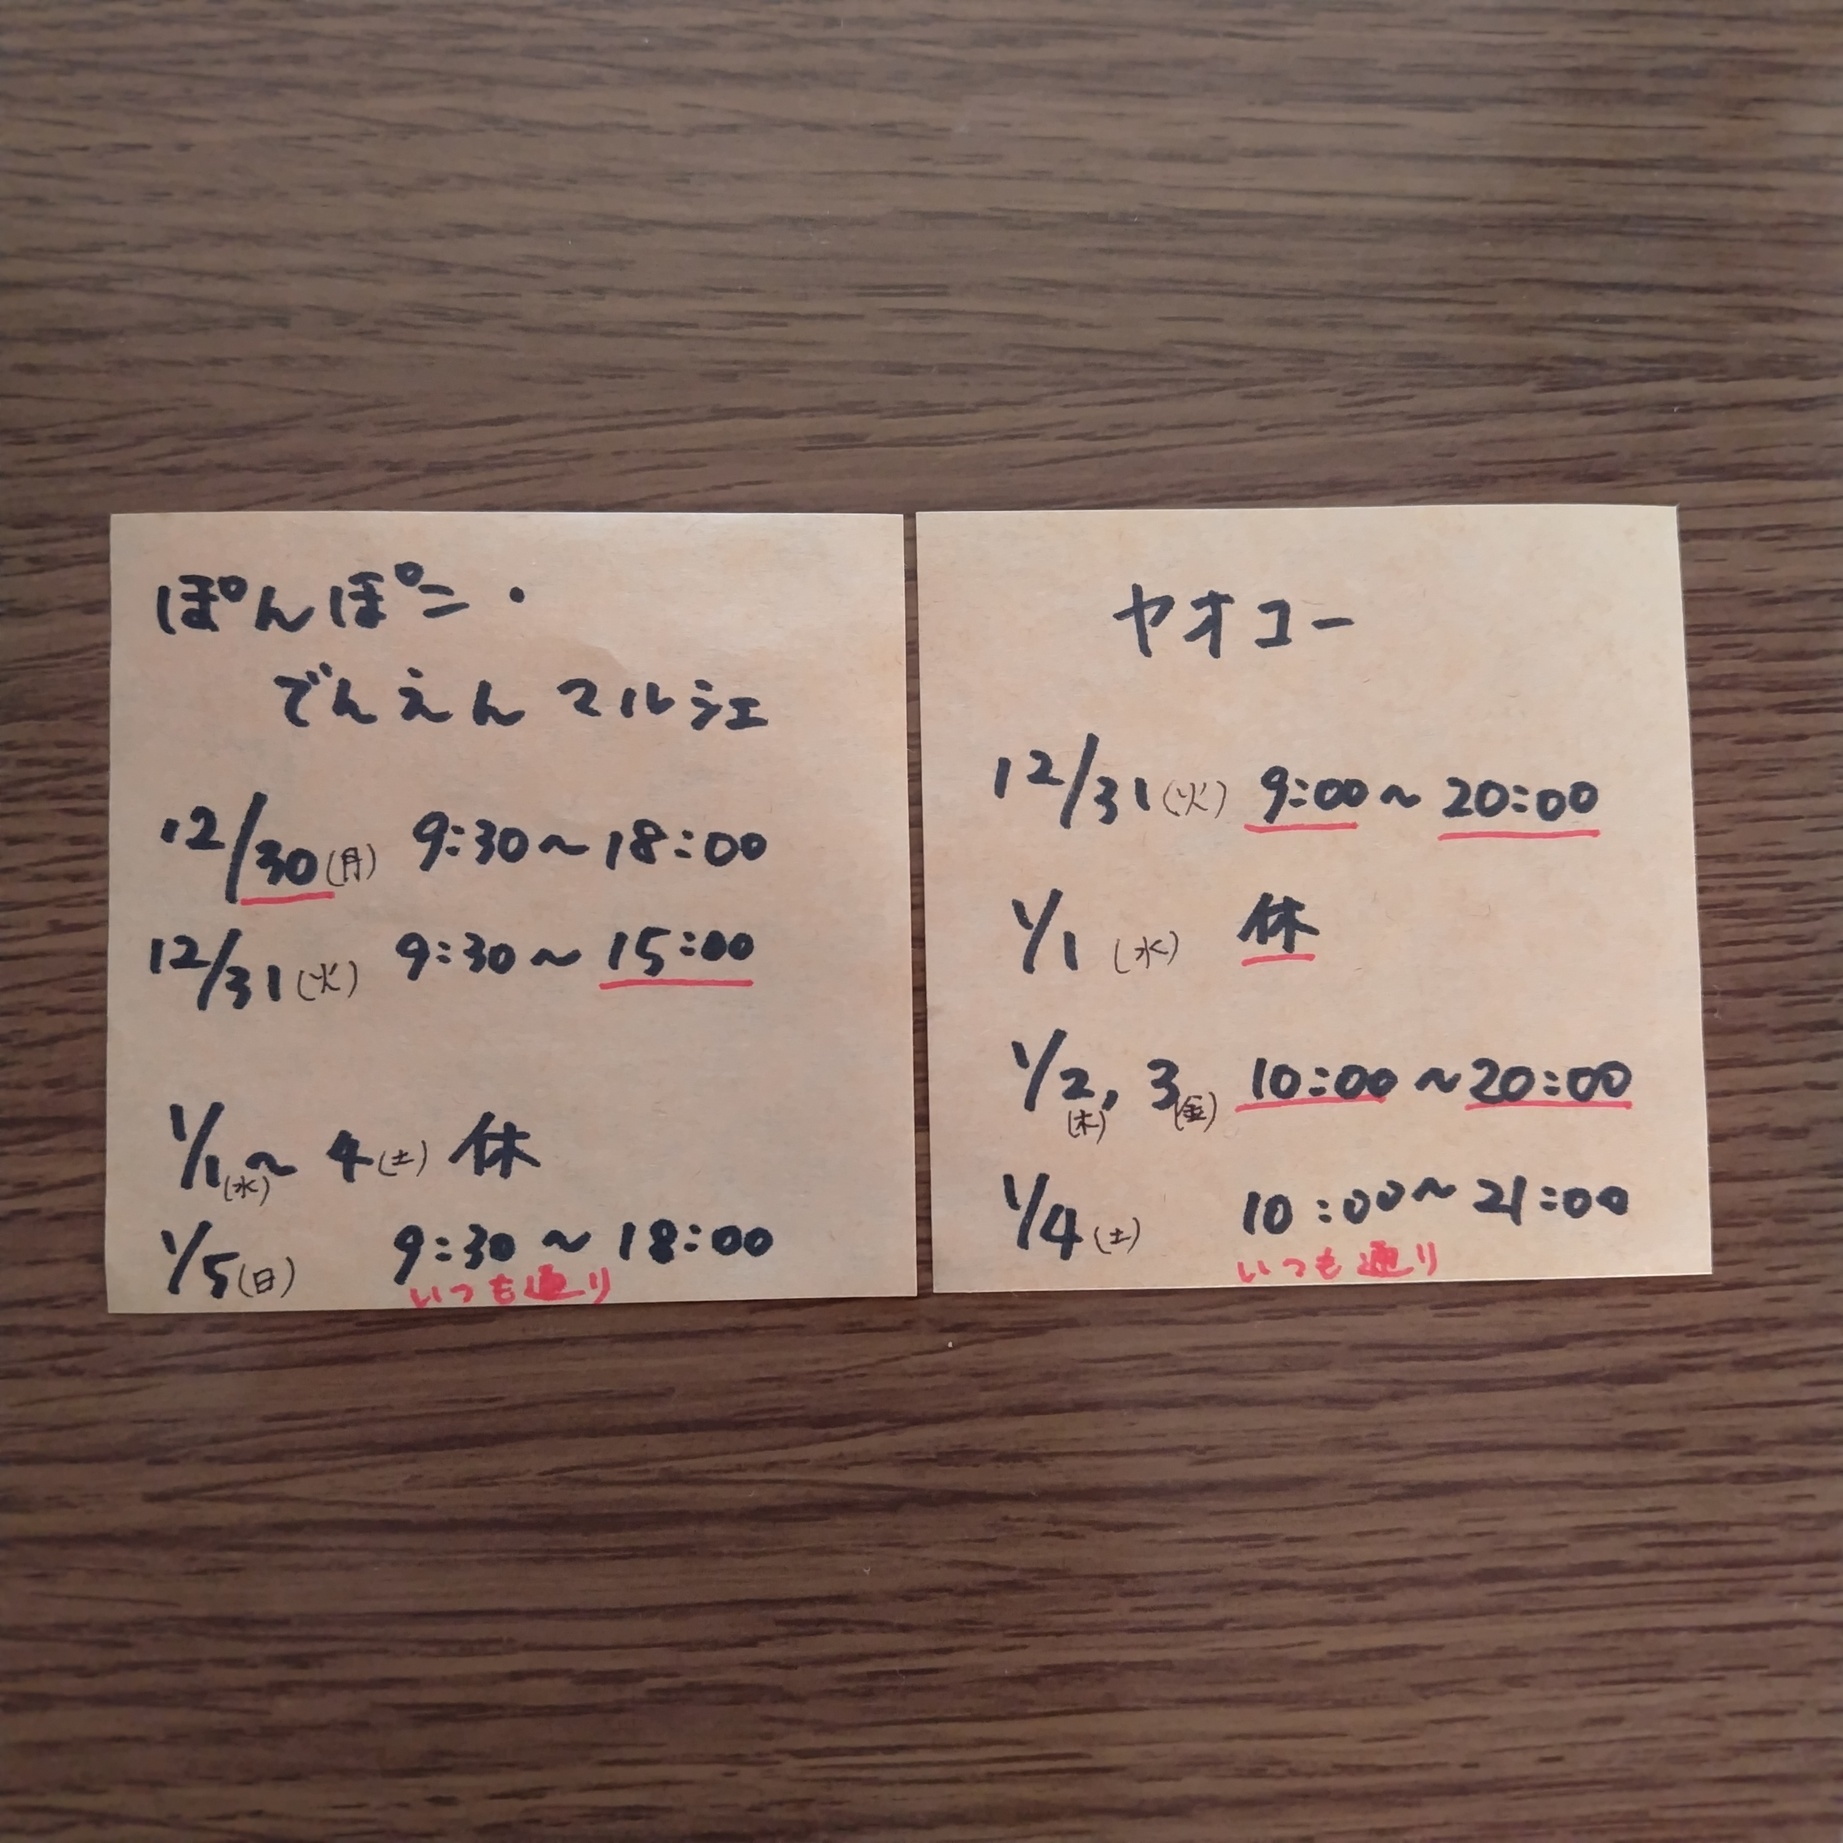 ぽんぽこ・
でんえんマルシェ
12/30(月) 9:30〜18:00
12/31(火) 9:30〜15:00
1/1(水)〜4(土) 休
1/5(日) 9:30〜18:00
いつも通り
ヤオコー
12/31(火) 9:00〜20:00
1/1(水) 休
1/2(木), 3(金) 10:00〜20:00
1/4(土) 10:00〜21:00
いつも通り